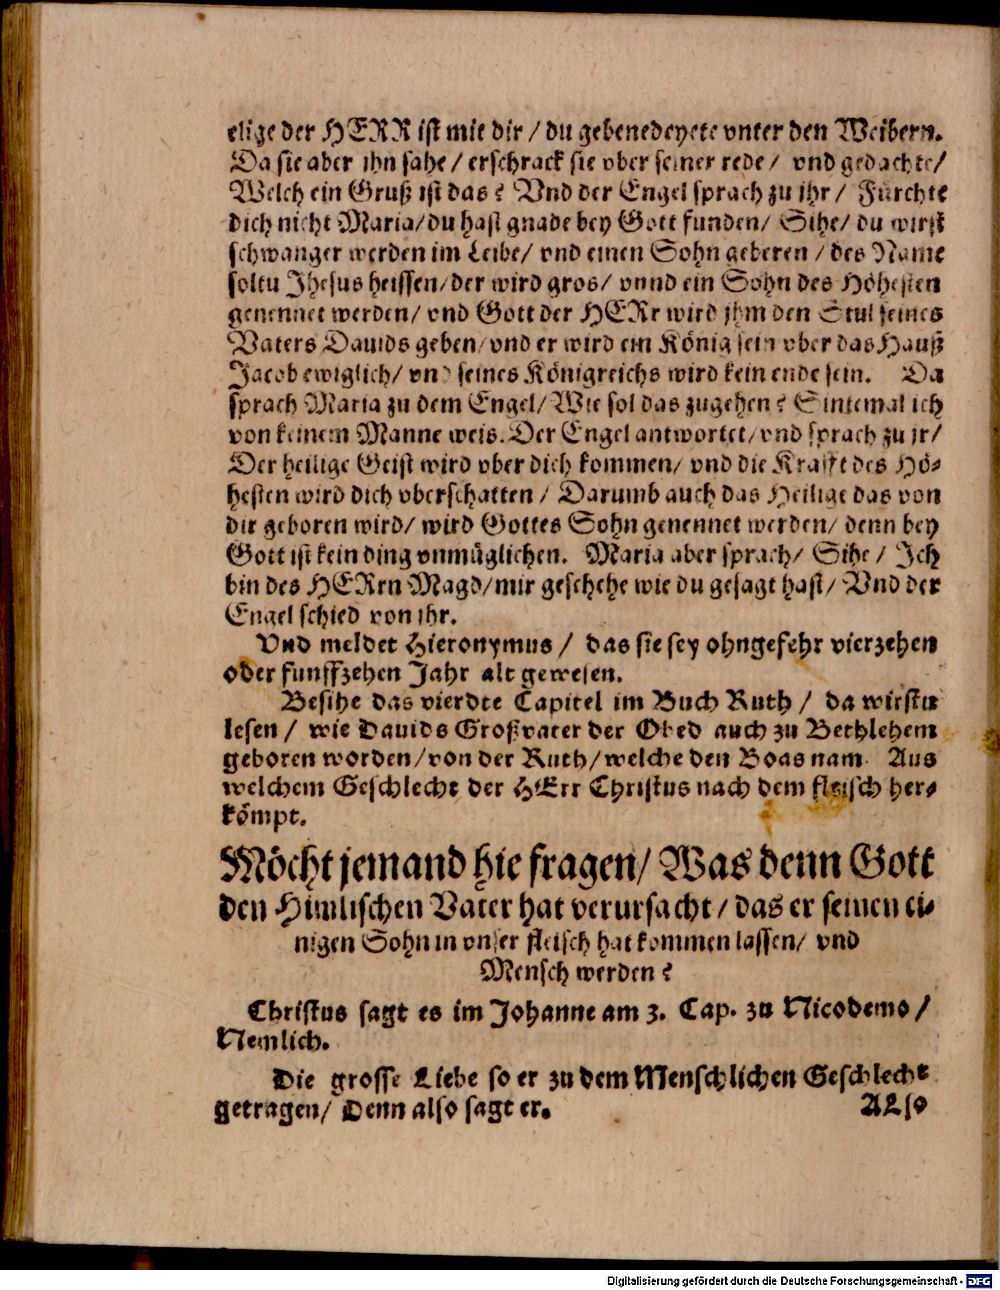 elige der HERR ist mit dir / du gebenedeyete vnter den Weibern.
Da sie aber ihn sahe / erschrack sie vber seiner rede / vnd gedachte /
Welch ein Gruß ist das? Vnd der Engel sprach zu ihr / Fürchte
dich nicht Maria / du hast gnade bey Gott funden / Sihe / du wirst
schwanger werden im Leibe / vnd einen Sohn geberen / des Name
soltu Jhesus heissen / der wird gros / vnnd ein Sohn des Höhesten
genennet werden / vnd Gott der HERr wird jhm den Stul seines
Vaters Dauids geben / vnd er wird ein König sein vber das Hauß
Jacob ewiglich / vnd seines Königreichs wird kein ende sein. Da
sprach Maria zu dem Engel / Wie sol das zugehen? Sintemal ich
von keinem Manne weis. Der Engel antwortet / vnd sprach zu jr /
Der heilige Geist wird vber dich kommen / vnd die Krafft des Hö-
hesten wird dich vberschatten / Darumb auch das Heilige das von
dir geboren wird / wird Gottes Sohn genennet werden / denn bey
Gott ist kein ding vnmüglichen. Maria aber sprach / Sihe / Ich
bin des HERrn Magd / mir geschehe wie du gesagt hast / Vnd der
Engel schied von ihr.
Vnd meldet Hieronymus / das sie sey ohngefehr vierzehen
oder funffzehen Jahr alt gewesen.
Besihe das vierdte Capitel im Buch Ruth / da wirstu
lesen / wie Dauids Großvater der Obed auch zu Bethlehem
geboren worden / von der Ruth / welche den Boas nam. Aus
welchem Geschlecht der HErr Christus nach dem fleisch her-
kömpt.
Möcht jemand hie fragen / Was denn Gott
den Himlischen Vater hat verursacht / das er seinen ei-
nigen Sohn in vnser fleisch hat kommen lassen / vnd
Mensch werden?
Christus sagt es im Johanne am 3. Cap. zu Nicodemo /
Nemlich.
Die grosse Liebe so er zu dem Menschlichen Geschlecht
getragen / Denn also sagt er.
ALso
Digitalisierung gefördert durch die Deutsche Forschungsgemeinschaft - DFG